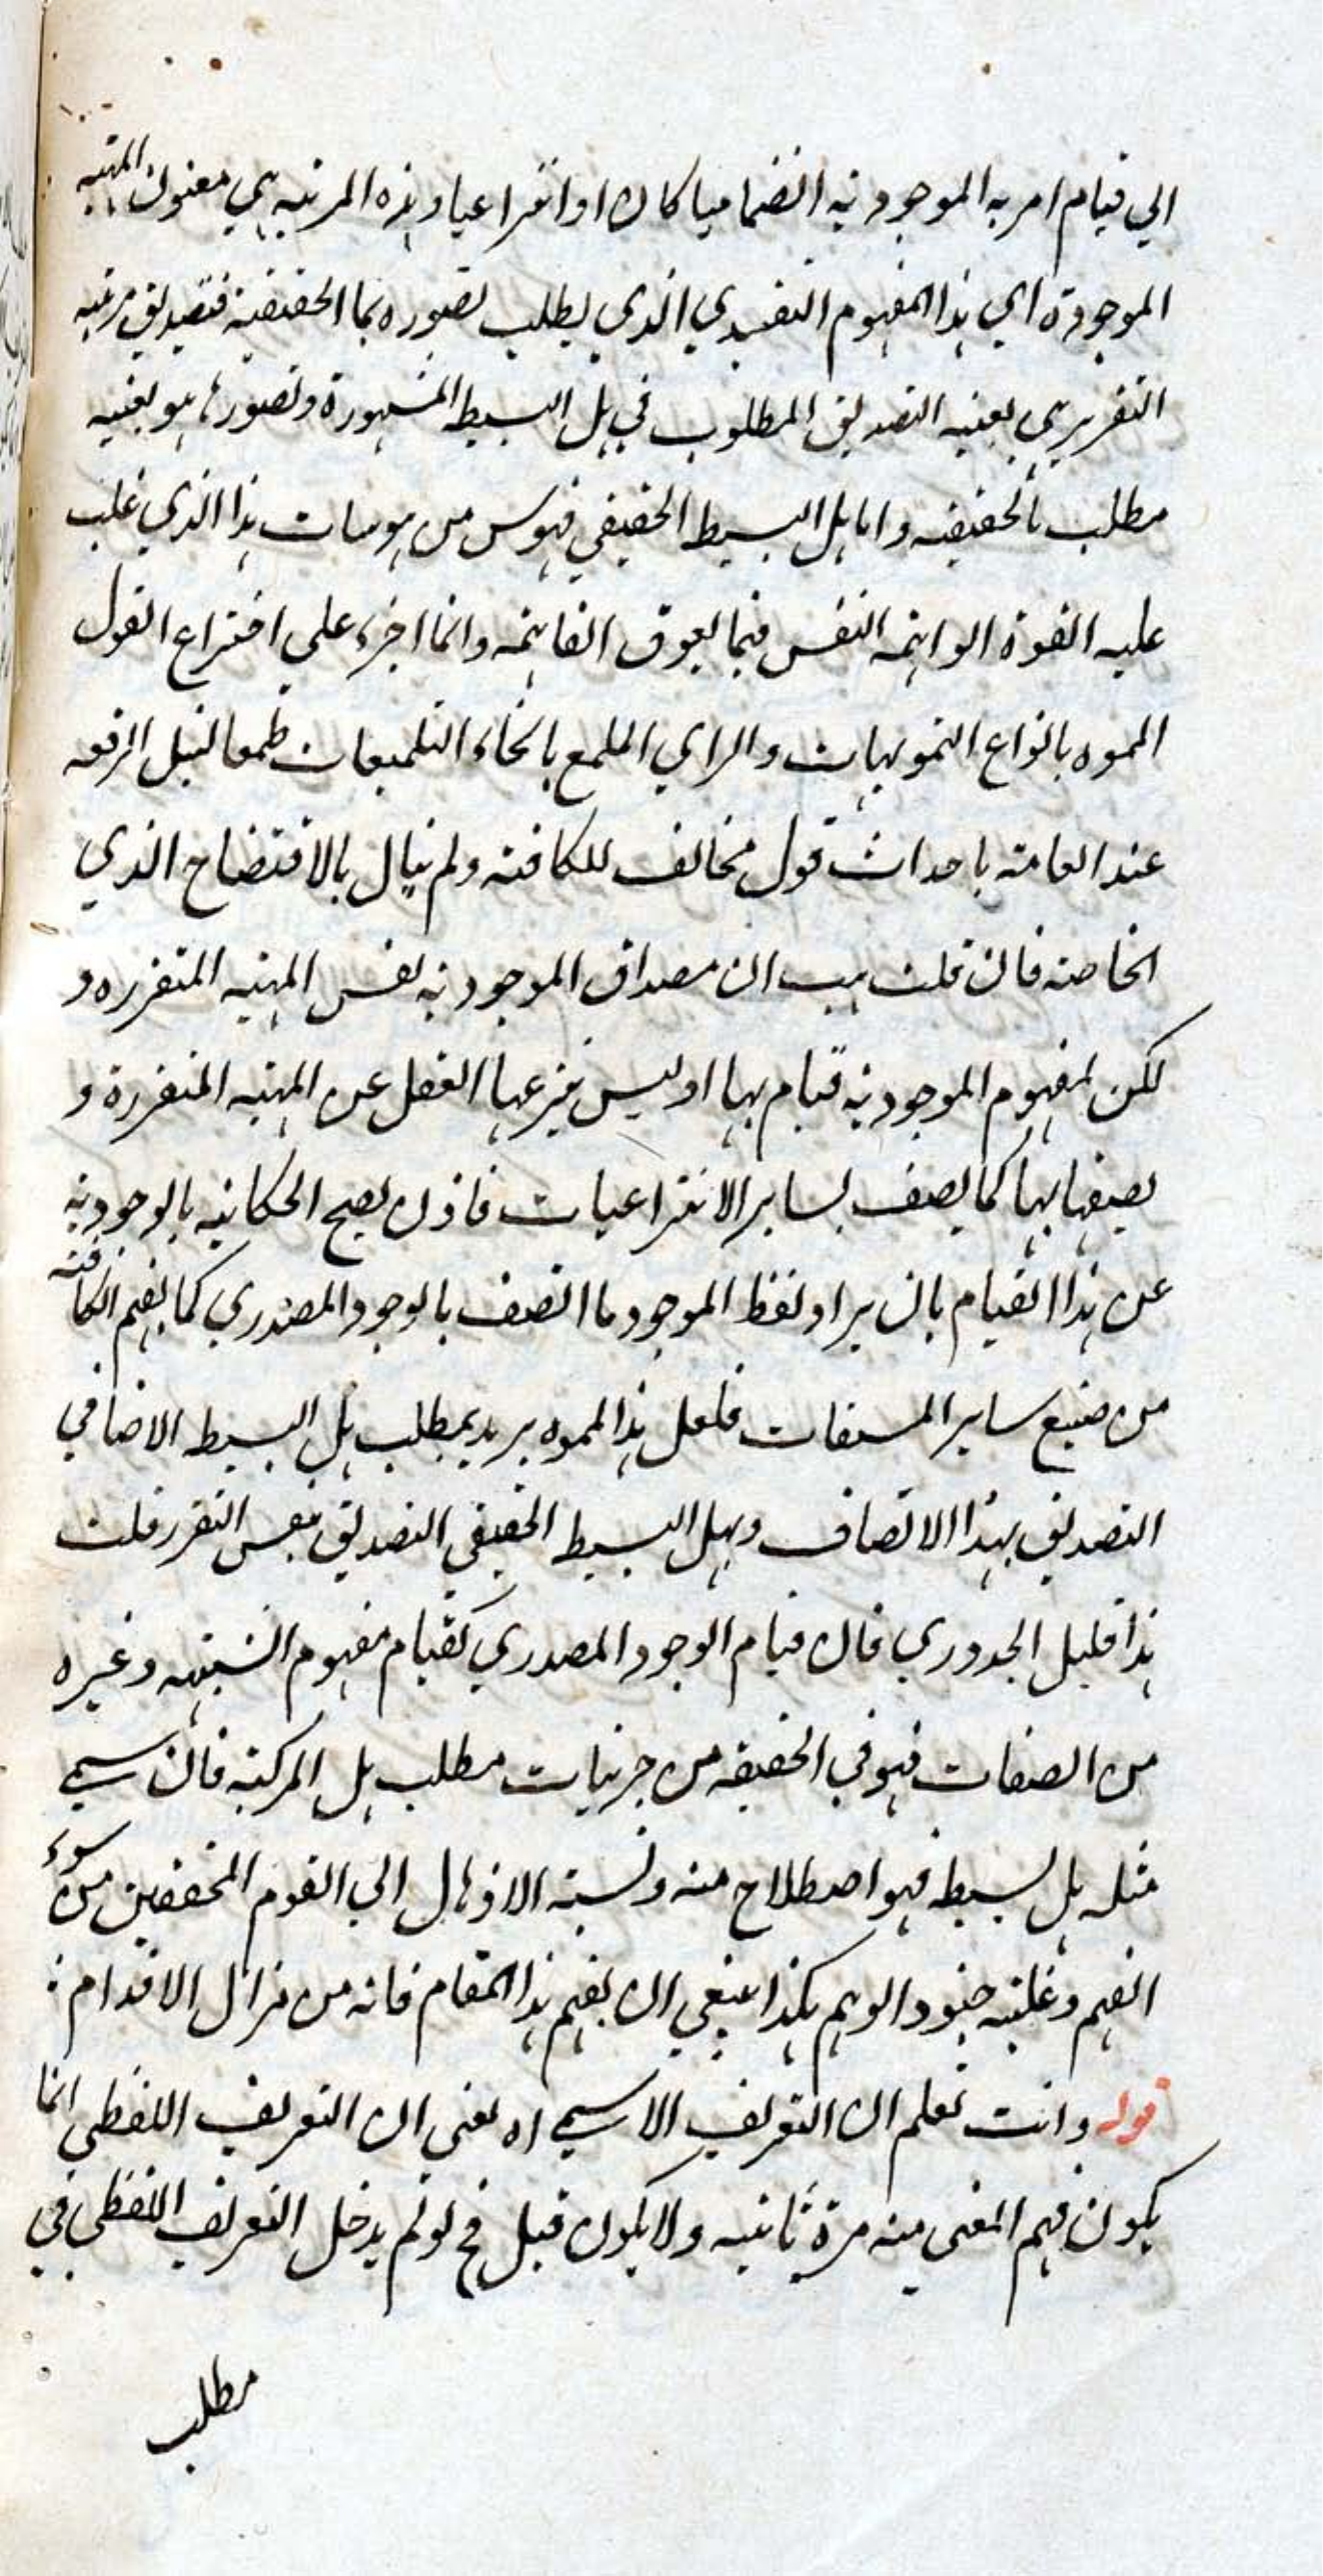 الي قيام امر به الموجودية انضماميا كان او انتزاعيا وهذه المرتبه هي معنون المهية
الموجودة اي هذا المفهوم التقييدي الذي يطلب تصوره بما الحقيقية فتصديق مرتبه
التقرر هي بعينه التصديق المطلوب في هل البسيط المشهورة وتصورها هو بعينه
مطلب ما الحقيقه واما هل البسيط الحقيقي فهوس من هوسات هذا الذي غلب
عليه القوة الواهمة النفس فيما يعوق الفاهمة وانما اجرء علي اختراع القول
المموه بانواع التمويهات والراي الملمع بانحاء التلميعات طمعا لنيل الرفعه
عند العامة باحداث قول مخالف للكافة ولم يبال بالافتضاح الذي
الخاصة فان قلت هب ان مصداق الموجودية نفس المهية المتقرره و
لكن لمفهوم الموجودية قيام بها او ليس ينزعها العقل عن المهية المتقررة و
يصفها بها كما يصف بساير الانتزاعيات فاذن يصح الحكاية بالوجودية
عن هذا القيام بان يراد لفظ الموجود ما اتصف بالوجود المصدري كما يفهم الكافة
من صنيع ساير المشتقات فلعل هذا المموه يريد بمطلب هل البسيط الاضافي
التصديق بهذا الاتصاف وبهل البسيط الحقيقي التصديق بنفس التقرر قلت
هذا قليل الجدوي فان قيام الوجود المصدري كقيام مفهوم الشيئية وغيره
من الصفات فهو في الحقيقه من جزئيات مطلب هل المركبة فان سمي
مثله هل بسيطه فهو اصطلاح منه ونسبة الاذهال الي القوم المحققين من سوء
الفهم وغلبة جنود الوهم هكذا ينبغي ان يفهم هذا المقام فانه من مزال الاقدام :
قوله وانت تعلم ان التعريف الاسمي اه يعني ان التعريف اللفظي انما
يكون فهم المعنى منه مرة ثانيه ولا يكون قبل فح لو لم يدخل التعريف اللفظي في
مطلب